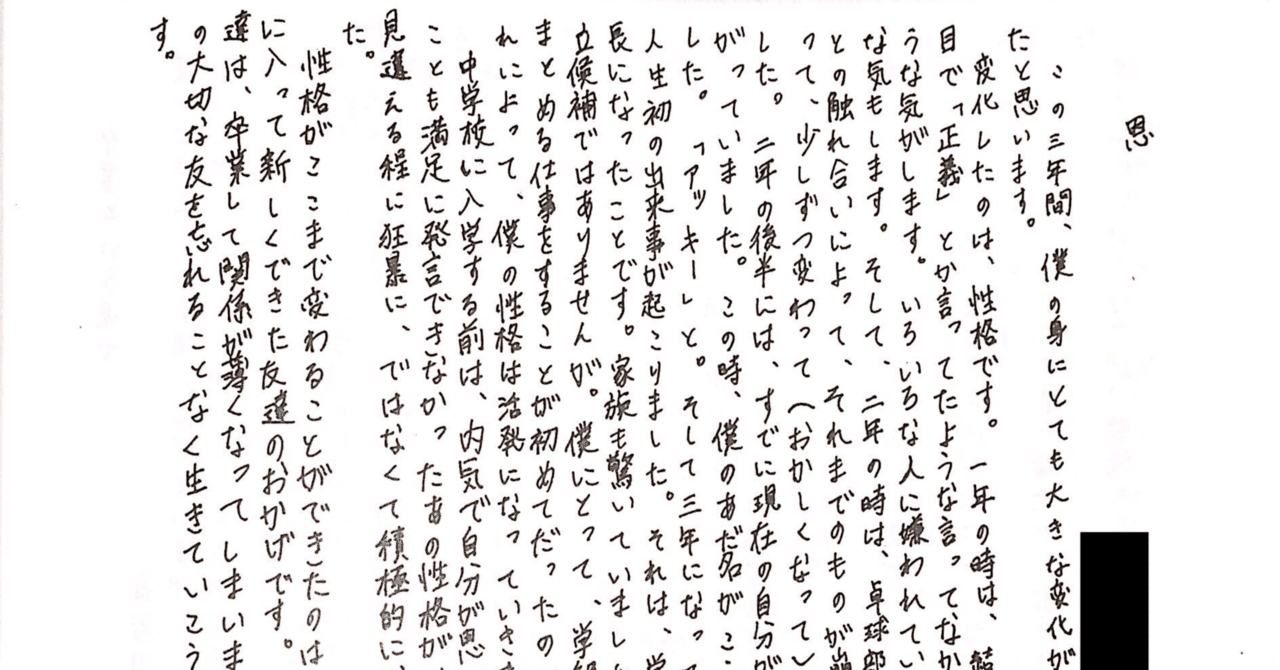 恩
この三年間、僕の身にとても大きな変化が
たと思います。
変化したのは、性格です。一年の時は、
目で「正義」とか言ってたような言ってなか
うな気がします。いろいろな人に嫌われてい
な気もします。そして、二年の時は、卓球部
との触れ合いによって、それまでのものが
って、少しずつ変わって(おかしくなってし
した。二年の後半には、すでに現在の自分が
がっていました。この時、僕のあだ名がこ
した。「アッキー」と。そして三年になっ
人生初の出来事が起こりました。それは、学
長になったことです。家族も驚いていまし
立候補ではありませんが。僕にとって、学級
まとめる仕事をすることが初めてだったの
れによって、僕の性格は活発になっていき
中学校に入学する前は、内気で自分が思
ことも満足に発言できなかったあの性格が
見違える程に狂暴に、ではなくて積極的に、
た。
性格がここまで変わることができたのは
に入って新しくできた友達のおかげです。
達は、卒業して関係が薄くなってしまいま
の大切な友を忘れることなく生きていこう
す。